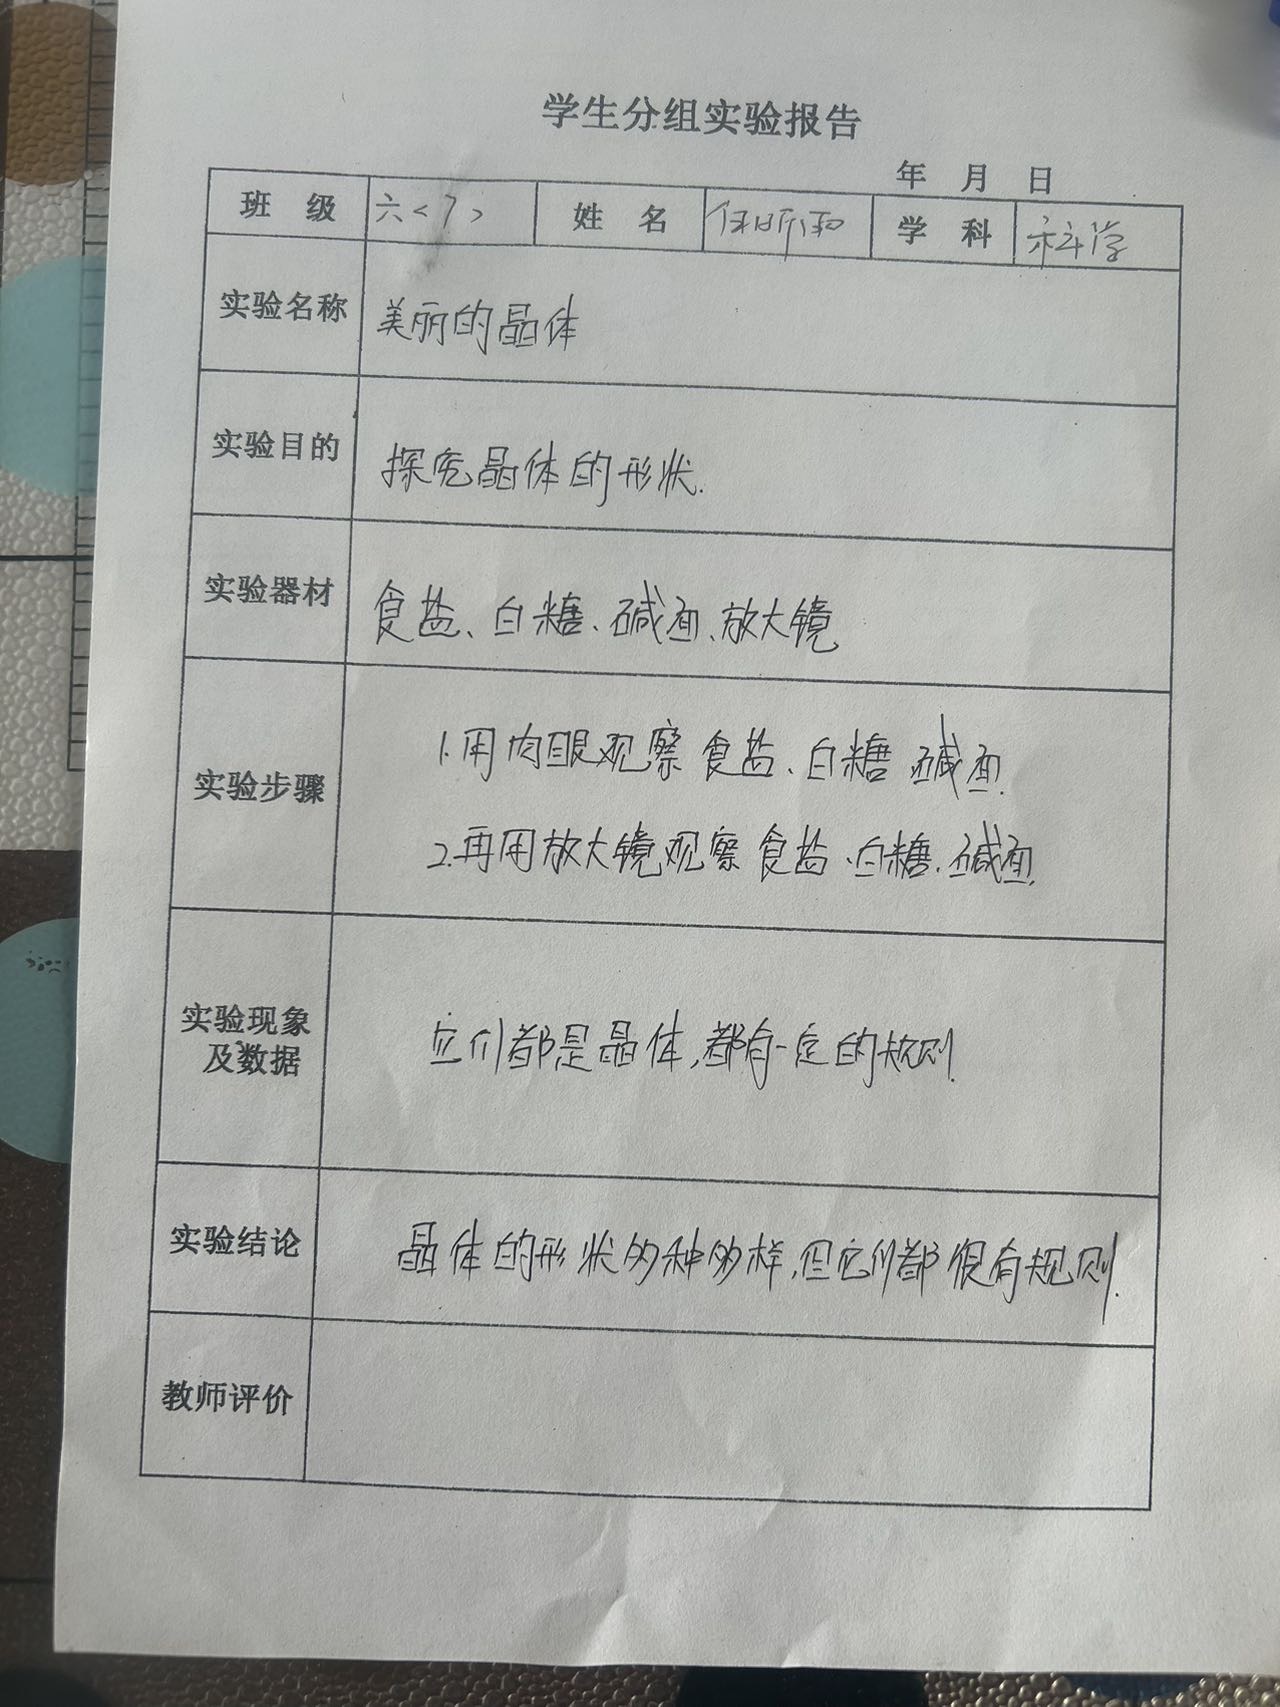 学生分组实验报告
年 月 日
班 级 六<7> 姓 名 任昕和 学 科 科学
实验名称 美丽的晶体
实验目的 探究晶体的形状.
实验器材 食盐、白糖、碱面、放大镜
实验步骤
1.用肉眼观察食盐、白糖 碱面.
2.再用放大镜观察食盐、白糖、碱面.
实验现象
及数据
它们都是晶体,都有一定的规则.
实验结论 晶体的形状多种多样,但它们都很有规则.
教师评价